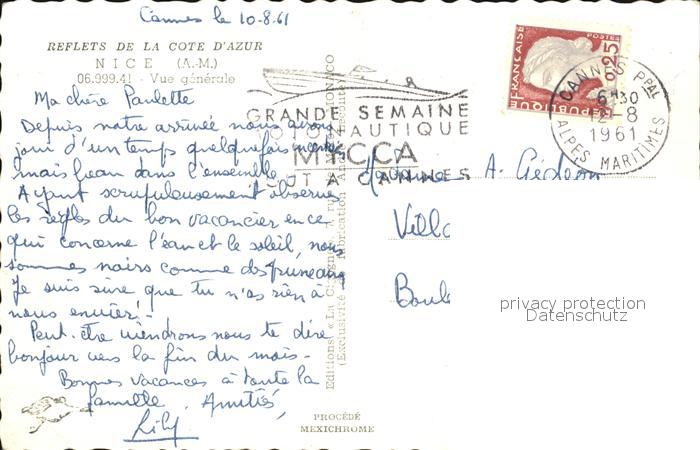 Cannes le 10-8-61
REFLETS DE LA COTE D'AZUR
NICE (A.-M.)
06.999.41 - Vue générale
Ma chère Paulette
Depuis notre arrivée nous avons
joui d'un temps quelquefois
mais beau dans l'ensemble.
Ayant scrupuleusement observés
les règles du bon vacancier en ce
qui concerne l'eau et le soleil, nous
sommes noirs comme des pruneaux
Je suis sûre que tu n'as rien à
nous envier!
Peut-être viendrons nous te dire
bonjour vers la fin du mois-
Bonnes vacances à toute la
famille. Amitiés,
Lily
GRANDE SEMAINE
NAUTIQUE
MYCCA
A CANNES
Editions « La Cigogne »
PROCÉDÉ
MEXICHROME
REPUBLIQUE
FRANÇAISE
POSTES
0,25
CANNES PPAL
6H30
12-8
1961
ALPES MARITIMES
Madame A. Gédéon
Villa
Boule
privacy protection
Datenschutz